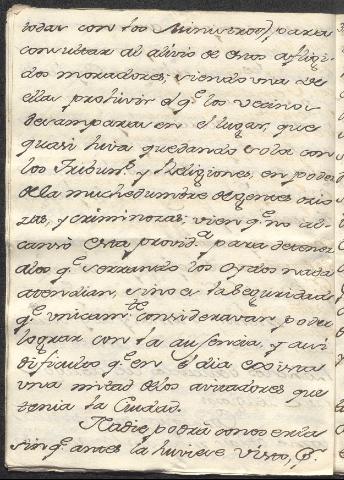 todas con los Ministros), para
consultar al alivio de estos afligi-
dos moradores; siendo una de
ellas prohivir el q.e los vecinos
desamparasen el lugar, que
quasi hiva quedando solo con
los Tribun.s y Religiones, en poder
de la muchedumbre de gentes ocio
zas, y criminozas; vien q.e no al-
canzó esta provid.a para detener
alos q.e serrando los oydos nada
atendian, sino a la seguridad
q.e unicam.te consideravan poder
lograr con la ausencia, y aun
dificulto q.e en el dia exista
una mitad delos avitadores que
tenia la Ciudad.
Nadie podrá conoserla
sin q.e antes la huviese visto,